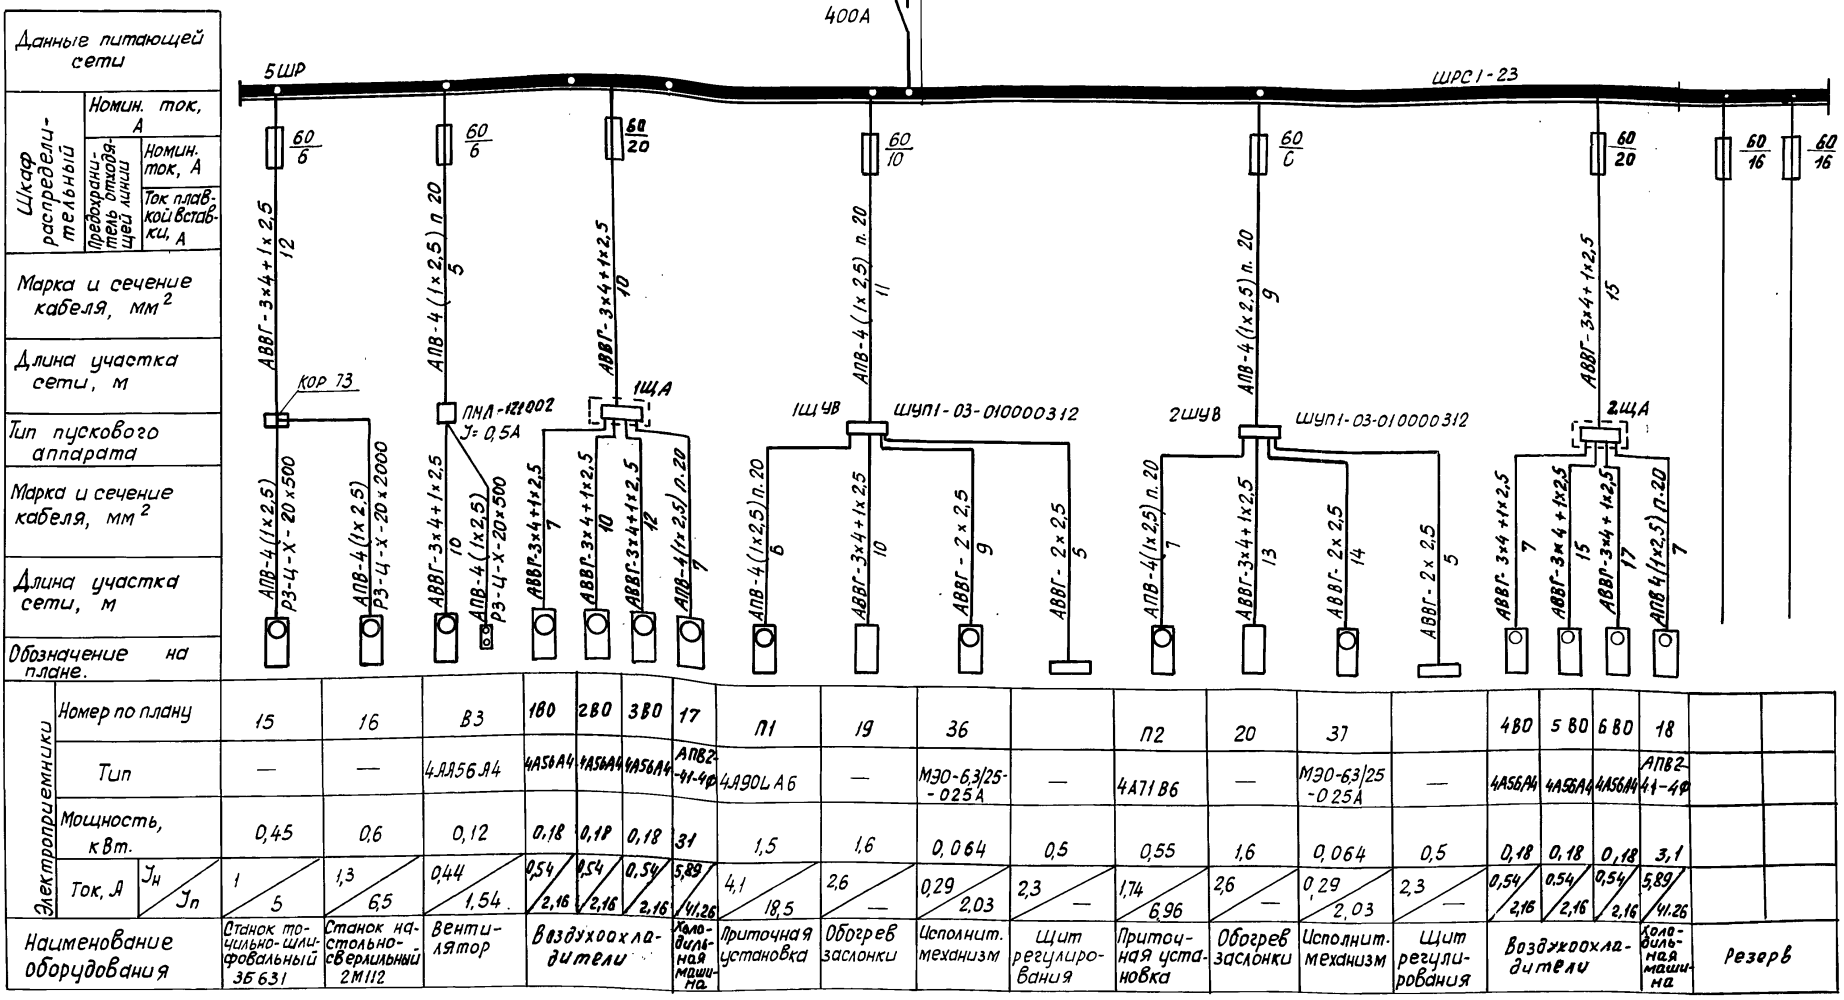 400А
5ШР
ШРС1-23
Данные питающей
сети
Шкаф
распредели-
тельный
Номин. ток,
А
Предохрани-
тель отходя-
щей линии
Номин.
ток, А
Ток плав-
кой встав-
ки, А
Марка и сечение
кабеля, мм²
Длина участка
сети, м
Тип пускового
аппарата
Марка и сечение
кабеля, мм²
Длина участка
сети, м
Обозначение на
плане.
60
6
60
6
60
20
60
10
60
С
60
20
60
16
60
16
АВВГ-3х4+1х2,5
12
АПВ-4(1х2,5) п 20
5
АВВГ-3х4+1х2,5
10
АПВ-4(1х2,5) п. 20
11
АПВ-4(1х2.5) п. 20
9
АВВГ-3х4+1х2,5
15
КОР 73
ПМЛ-121002
J=0,5А
1ЩА
1ЩУВ
ШУП1-03-010000312
2ШУВ
ШУП1-03-010000312
2ЩА
АПВ-4(1х2,5)
РЗ-Ц-Х-20х500
АПВ-4(1х2,5)
РЗ-Ц-Х-20х2000
АВВГ-3х4+1х2,5
10
АПВ-4(1х2,5)
РЗ-Ц-Х-20х500
АВВГ-3х4+1х2,5
7
АВВГ-3х4+1х2,5
10
АВВГ-3х4+1х2,5
12
АПВ-4(1х2,5) п.20
7
АПВ-4(1х2,5)п.20
6
АВВГ-3х4+1х2,5
10
АВВГ-2х2,5
9
АВВГ-2х2,5
5
АПВ-4(1х2,5)п.20
7
АВВГ-3х4+1х2,5
13
АВВГ-2х2,5
14
АВВГ-2х2,5
5
АВВГ-3х4+1х2,5
7
АВВГ-3х4+1х2,5
15
АВВГ-3х4+1х2,5
17
АПВ 4(1х2,5) п.20
7
Электроприемники
Номер по плану
15 16 В3 1В0 2В0 3В0 17 П1 19 36 П2 20 37 4В0 5В0 6В0 18
Тип
— — 4АА56А4 4А56А4 4А56А4 4А56А4 АПВ2-
-41-4Ф 4А90LА6 — МЭО-6,3/25-
-025А — 4А71В6 — МЭО-6,3/25
-025А — 4А56А4 4А56А4 4А56А4 АПВ2-
41-4Ф
Мощность,
кВт.
0,45 0,6 0,12 0,18 0,18 0,18 31 1,5 1,6 0,064 0,5 0,55 1,6 0,064 0,5 0,18 0,18 0,18 3,1
Ток, А Jн
Jп
1 1,3 0,44 0,54 0,54 0,54 5,89 4,1 2,6 0,29 2,3 1,74 2,6 0,29 2,3 0,54 0,54 0,54 5,89
5 6,5 1,54. 2,16 2,16 2,16 41.26 18,5 — 2,03 — 6,96 — 2,03 — 2,16 2,16 2,16 41.26
Наименование
оборудования
Станок то-
чильно-шли-
фовальный
3Б631
Станок на-
стольно-
сверлильный
2М112
Венти-
лятор
Воздухоохла-
дители
Холо-
диль-
ная
маши-
на
Приточная
установка
Обогрев
заслонки
Исполнит.
механизм
Щит
регулиро-
вания
Приточ-
ная уста-
новка
Обогрев
заслонки
Исполнит.
механизм
Щит
регули-
рования
Воздухоохла-
дители
Холо-
диль-
ная
маши-
на
Резерв